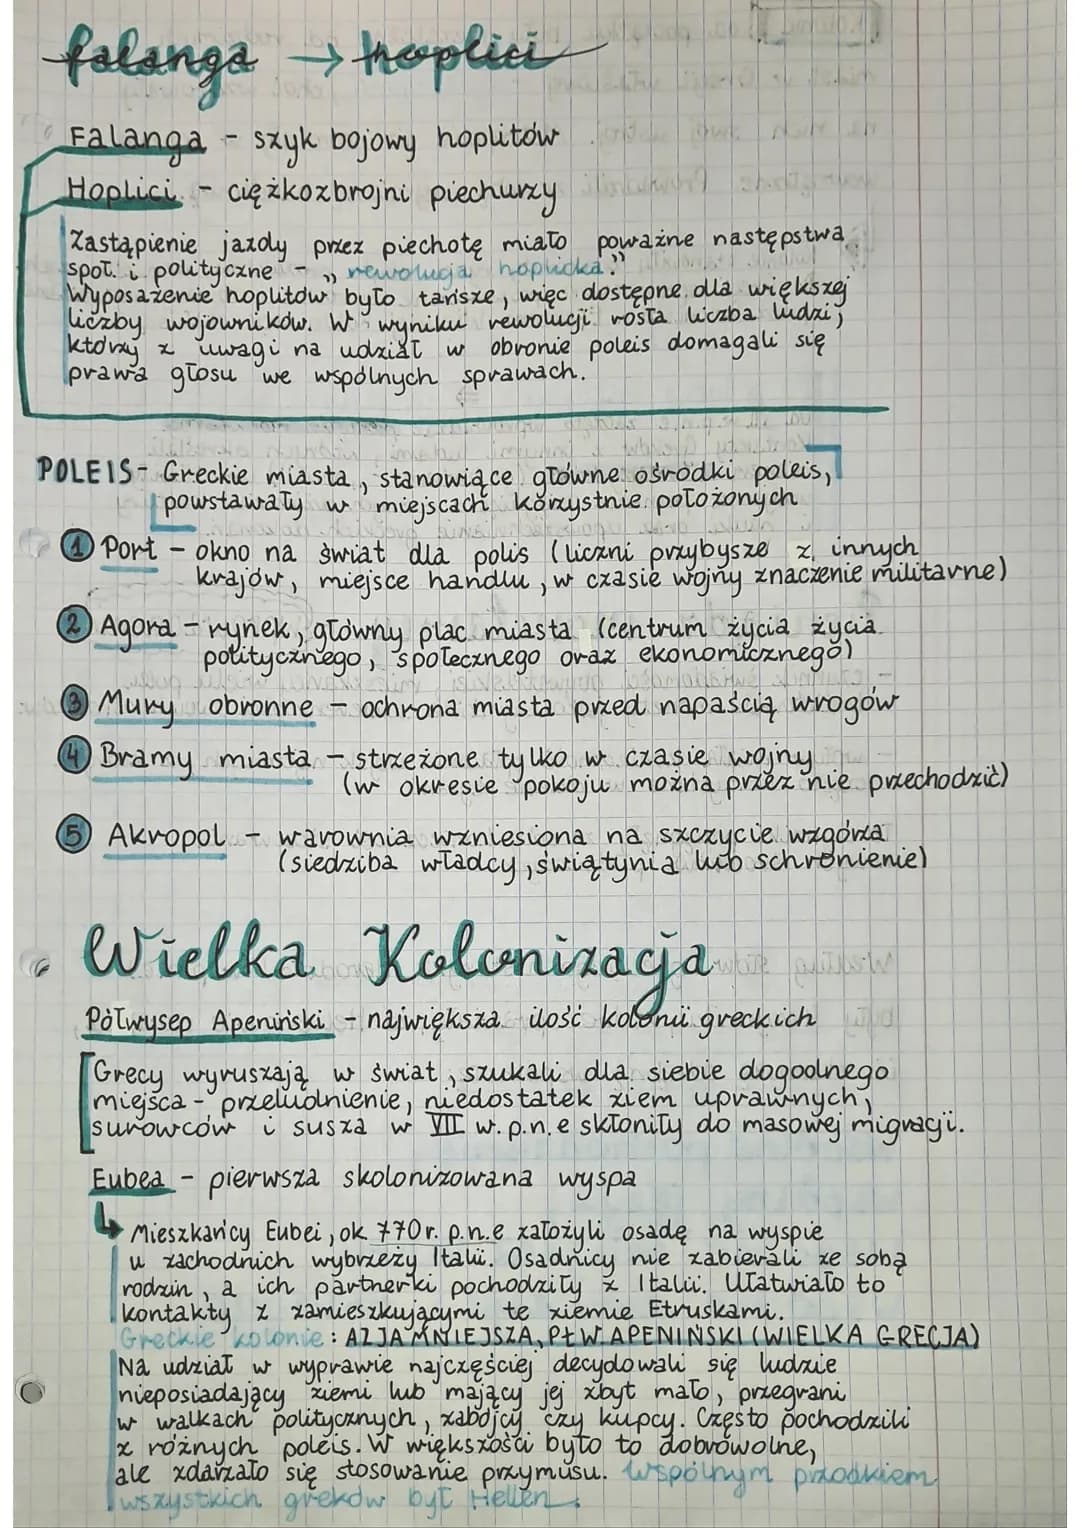 falanga → hoplici
Falanga - szyk bojowy hoplitów
Hoplici - ciężkozbrojni piechurzy
Zastąpienie jazdy przez piechotę miało poważne następstwa
społ. i polityczne - „rewolucja hoplicka."
Wyposażenie hoplitów było tańsze, więc dostępne dla większej
liczby wojowników. W wyniku rewolucji rosła liczba ludzi,
którzy z uwagi na udział w obronie poleis domagali się
prawa głosu we wspólnych sprawach.
POLEIS - Greckie miasta, stanowiące główne ośrodki poleis,
powstawały w miejscach korzystnie położonych
1 Port - okno na świat dla polis (liczni przybysze z innych
krajów, miejsce handlu, w czasie wojny znaczenie militarne)
2 Agora - rynek, główny plac miasta (centrum życia życia
politycznego, społecznego oraz ekonomicznego)
3 Mury obronne - ochrona miasta przed napaścią wrogów
4 Bramy miasta - strzeżone tylko w czasie wojny
(w okresie pokoju można przez nie przechodzić)
5 Akropol - warownia wzniesiona na szczycie wzgórza
(siedziba władcy, świątynia lub schronienie)
Wielka Kolonizacja
Półwysep Apeniński - największa ilość kolonii greckich
Grecy wyruszają w świat, szukali dla siebie dogodnego
miejsca - przeludnienie, niedostatek ziem uprawnych,
surowców i susza w VII w. p.n.e skłoniły do masowej migracji.
Eubea - pierwsza skolonizowana wyspa
↳ Mieszkańcy Eubei, ok 770 r. p.n.e założyli osadę na wyspie
u zachodnich wybrzeży Italii. Osadnicy nie zabierali ze sobą
rodzin, a ich partnerki pochodziły z Italii. Ułatwiało to
kontakty z zamieszkującymi te ziemie Etruskami.
Greckie kolonie: AZJA MNIEJSZA, PŁW. APENIŃSKI (WIELKA GRECJA)
Na udział w wyprawie najczęściej decydowali się ludzie
nieposiadający ziemi lub mający jej zbyt mało, przegrani
w walkach politycznych, zabójcy czy kupcy. Często pochodzili
z różnych poleis. W większości było to dobrowolne,
ale zdarzało się stosowanie przymusu. Wspólnym przodkiem
wszystkich greków był Hellen.